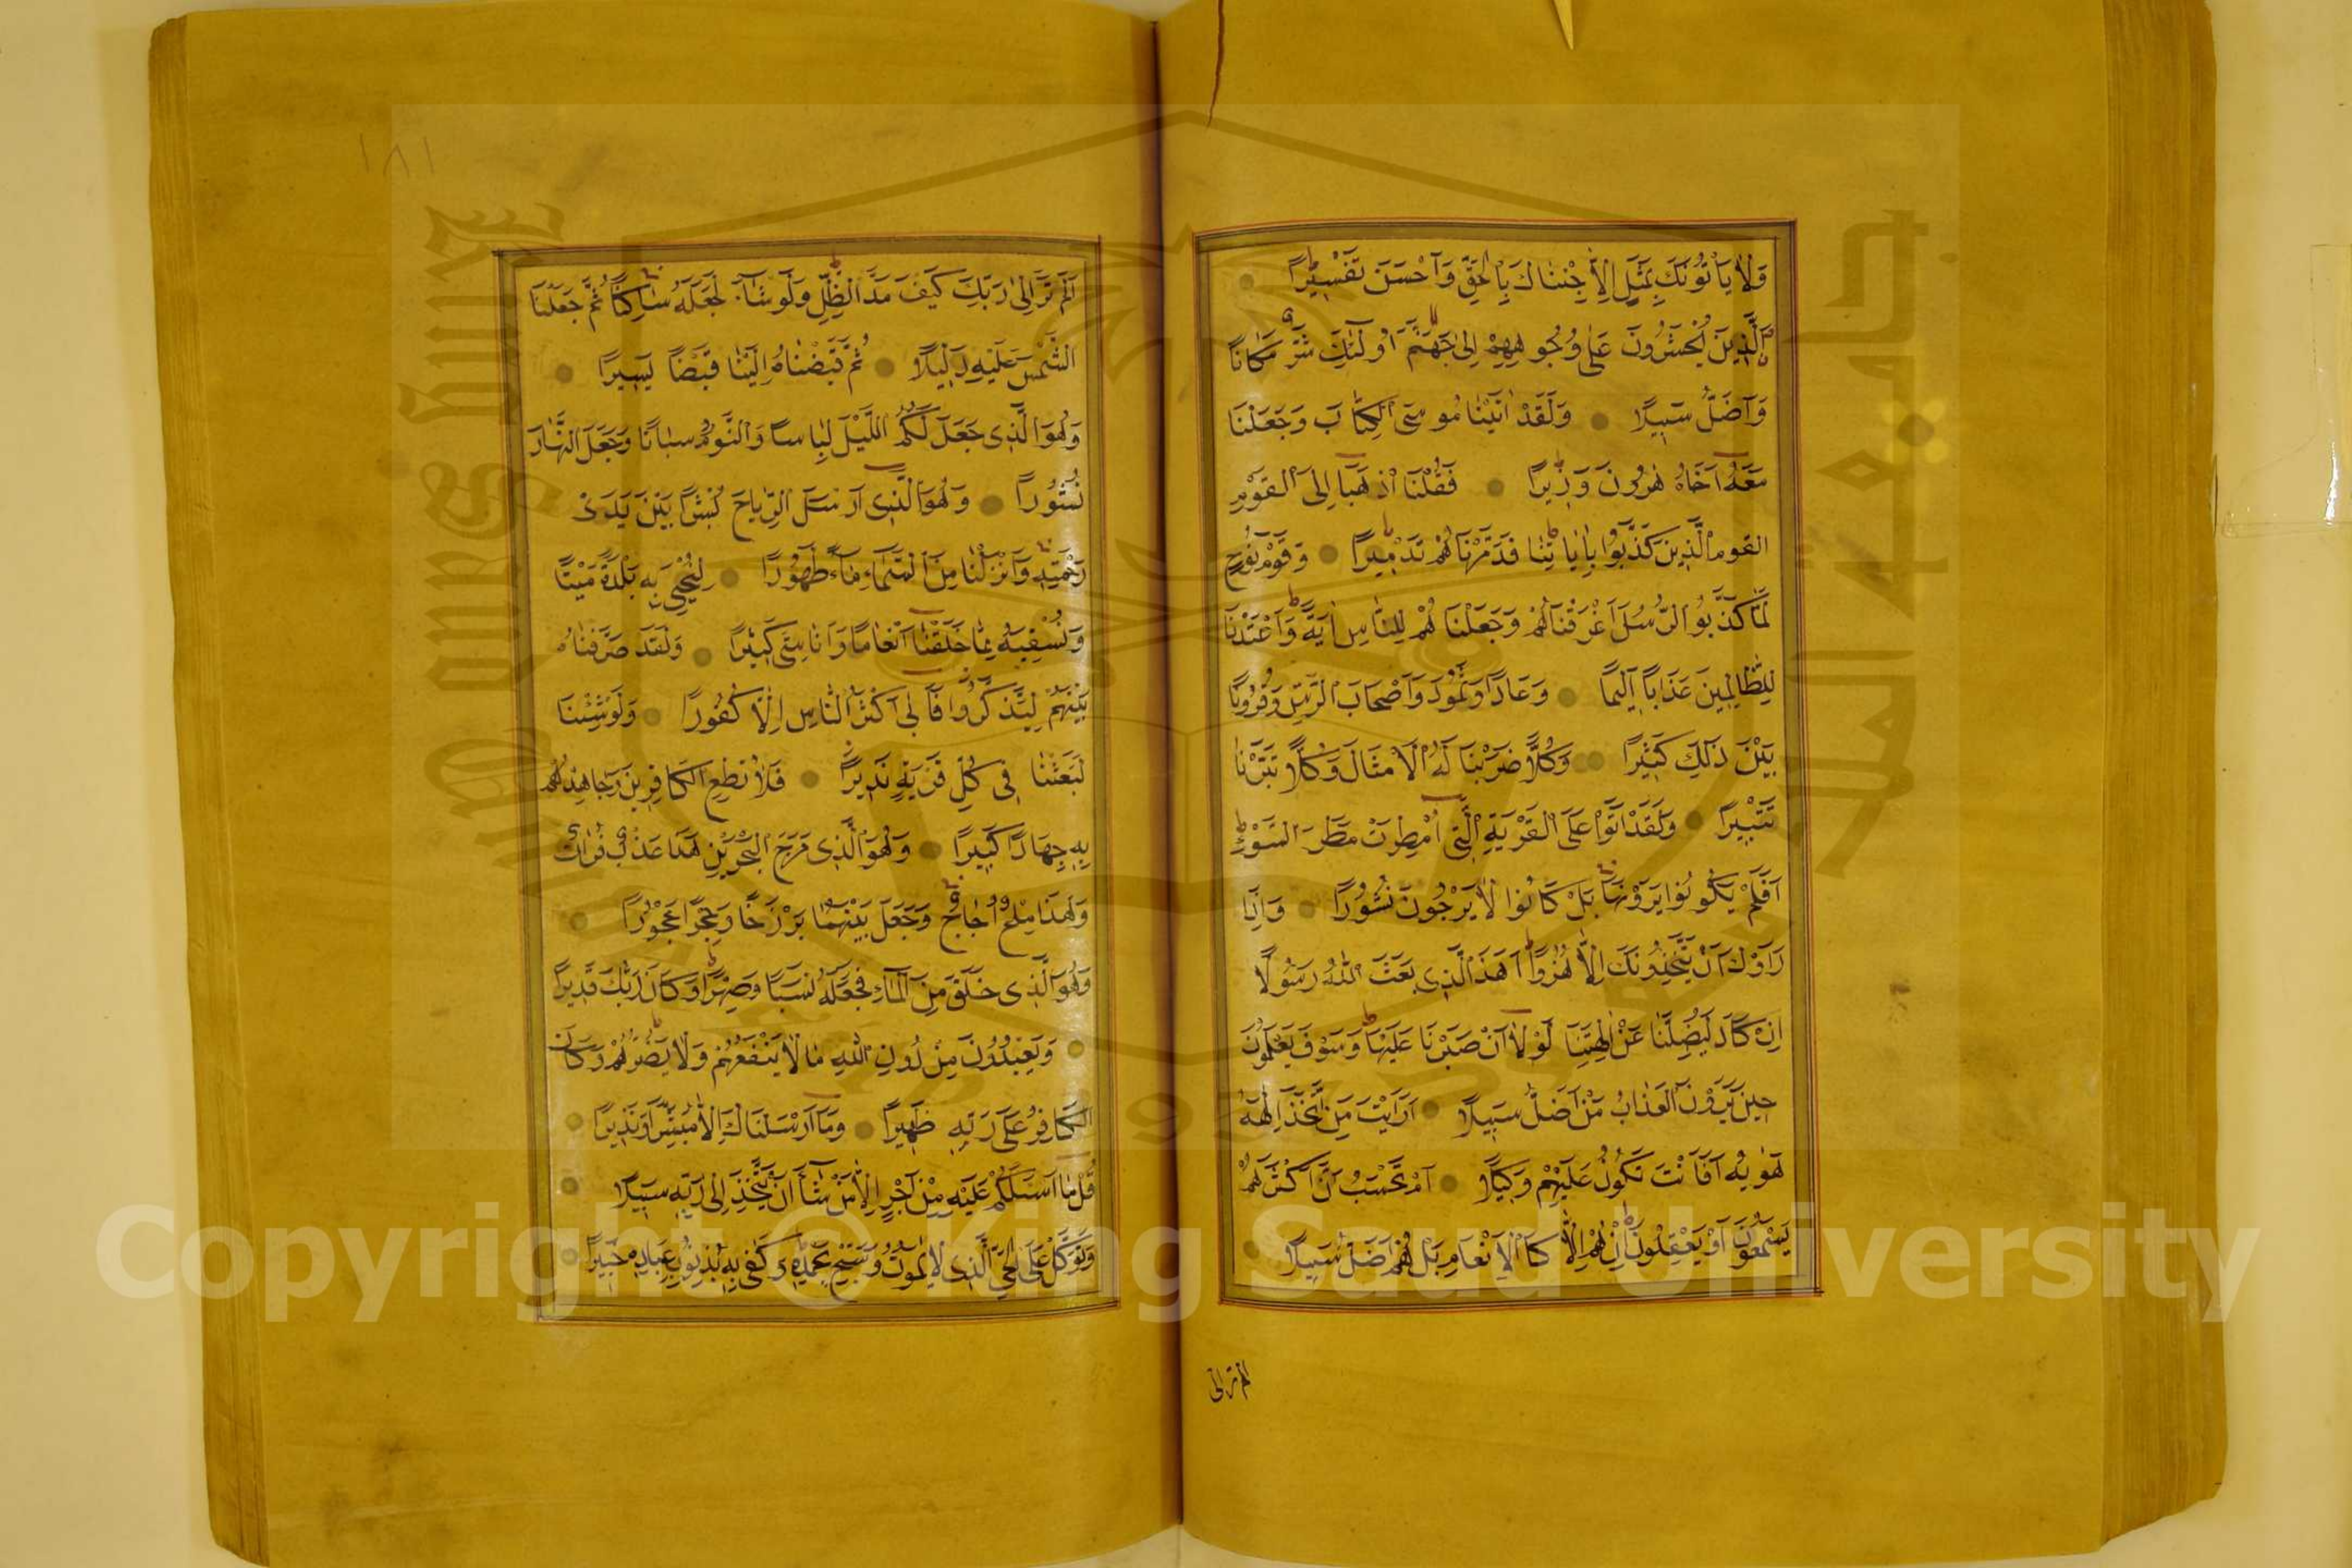 وَلَا يَأْتُونَكَ بِمَثَلٍ اِلَّا جِئْنَاكَ بِالْحَقِّ وَاَحْسَنَ تَفْسِيرًا
اَلَّذِينَ يُحْشَرُونَ عَلَى وُجُوهِهِمْ اِلَى جَهَنَّمَ اُولَئِكَ شَرٌّ مَكَانًا
وَاَضَلُّ سَبِيلًا وَلَقَدْ اٰتَيْنَا مُوسَى الْكِتَابَ وَجَعَلْنَا
مَعَهُ اَخَاهُ هٰرُونَ وَزِيرًا فَقُلْنَا اذْهَبَا اِلَى الْقَوْمِ
القوم الَّذِينَ كَذَّبُوا بِاٰيَاتِنَا فَدَمَّرْنَاهُمْ تَدْمِيرًا وَقَوْمَ نُوحٍ
لَمَّا كَذَّبُوا الرُّسُلَ اَغْرَقْنَاهُمْ وَجَعَلْنَاهُمْ لِلنَّاسِ اٰيَةً وَاَعْتَدْنَا
لِلظَّالِمِينَ عَذَابًا اَلِيمًا وَعَادًا وَثَمُودَ وَاَصْحَابَ الرَّسِّ وَقُرُونًا
بَيْنَ ذٰلِكَ كَثِيرًا وَكُلًّا ضَرَبْنَا لَهُ الْاَمْثَالَ وَكُلًّا تَبَّرْنَا
تَتْبِيرًا وَلَقَدْ اَتَوْا عَلَى الْقَرْيَةِ الَّتِي اُمْطِرَتْ مَطَرَ السَّوْءِ
اَفَلَمْ يَكُونُوا يَرَوْنَهَا بَلْ كَانُوا لَا يَرْجُونَ نُشُورًا وَاِذَا
رَاَوْكَ اَنْ يَتَّخِذُونَكَ اِلَّا هُزُوًا اَهَذَا الَّذِي بَعَثَ اللهُ رَسُولًا
اِنْ كَادَ لَيُضِلُّنَا عَنْ اٰلِهَتِنَا لَوْلَا اَنْ صَبَرْنَا عَلَيْهَا وَسَوْفَ يَعْلَمُونَ
حِينَ يَرَوْنَ الْعَذَابَ مَنْ اَضَلُّ سَبِيلًا اَرَاَيْتَ مَنِ اتَّخَذَ اِلٰهَهُ
هَوٰيهُ اَفَاَنْتَ تَكُونُ عَلَيْهِمْ وَكِيلًا اَمْ تَحْسَبُ اَنَّ اَكْثَرَهُمْ
يَسْمَعُونَ اَوْ يَعْقِلُونَ اِنْ هُمْ اِلَّا كَالْاَنْعَامِ بَلْ هُمْ اَضَلُّ سَبِيلًا
الم تر الى
١٨١
اَلَمْ تَرَ اِلَى رَبِّكَ كَيْفَ مَدَّ الظِّلَّ وَلَوْ شَاءَ لَجَعَلَهُ سَاكِنًا ثُمَّ جَعَلْنَا
الشَّمْسَ عَلَيْهِ دَلِيلًا ثُمَّ قَبَضْنَاهُ اِلَيْنَا قَبْضًا يَسِيرًا
وَهُوَ الَّذِي جَعَلَ لَكُمُ اللَّيْلَ لِبَاسًا وَالنَّوْمَ سُبَاتًا وَجَعَلَ النَّهَارَ
نُشُورًا وَهُوَ الَّذِي اَرْسَلَ الرِّيَاحَ بُشْرًا بَيْنَ يَدَيْ
رَحْمَتِهِ وَاَنْزَلْنَا مِنَ السَّمَاءِ مَاءً طَهُورًا لِنُحْيِيَ بِهِ بَلْدَةً مَيْتًا
وَنُسْقِيَهُ مِمَّا خَلَقْنَا اَنْعَامًا وَاَنَاسِيَّ كَثِيرًا وَلَقَدْ صَرَّفْنَاهُ
بَيْنَهُمْ لِيَذَّكَّرُوا فَاَبَى اَكْثَرُ النَّاسِ اِلَّا كُفُورًا وَلَوْ شِئْنَا
لَبَعَثْنَا فِي كُلِّ قَرْيَةٍ نَذِيرًا فَلَا تُطِعِ الْكَافِرِينَ وَجَاهِدْهُمْ
بِهِ جِهَادًا كَبِيرًا وَهُوَ الَّذِي مَرَجَ الْبَحْرَيْنِ هَذَا عَذْبٌ فُرَاتٌ
وَهَذَا مِلْحٌ اُجَاجٌ وَجَعَلَ بَيْنَهُمَا بَرْزَخًا وَحِجْرًا مَحْجُورًا
وَهُوَ الَّذِي خَلَقَ مِنَ الْمَاءِ فَجَعَلَهُ نَسَبًا وَصِهْرًا وَكَانَ رَبُّكَ قَدِيرًا
وَيَعْبُدُونَ مِنْ دُونِ اللهِ مَا لَا يَنْفَعُهُمْ وَلَا يَضُرُّهُمْ وَكَانَ
الْكَافِرُ عَلَى رَبِّهِ ظَهِيرًا وَمَا اَرْسَلْنَاكَ اِلَّا مُبَشِّرًا وَنَذِيرًا
قُلْ مَا اَسْئَلُكُمْ عَلَيْهِ مِنْ اَجْرٍ اِلَّا مَنْ شَاءَ اَنْ يَتَّخِذَ اِلَى رَبِّهِ سَبِيلًا
وَتَوَكَّلْ عَلَى الْحَيِّ الَّذِي لَا يَمُوتُ وَسَبِّحْ بِحَمْدِهِ وَكَفَى بِهِ بِذُنُوبِ عِبَادِهِ خَبِيرًا
Copyright © King Saud University